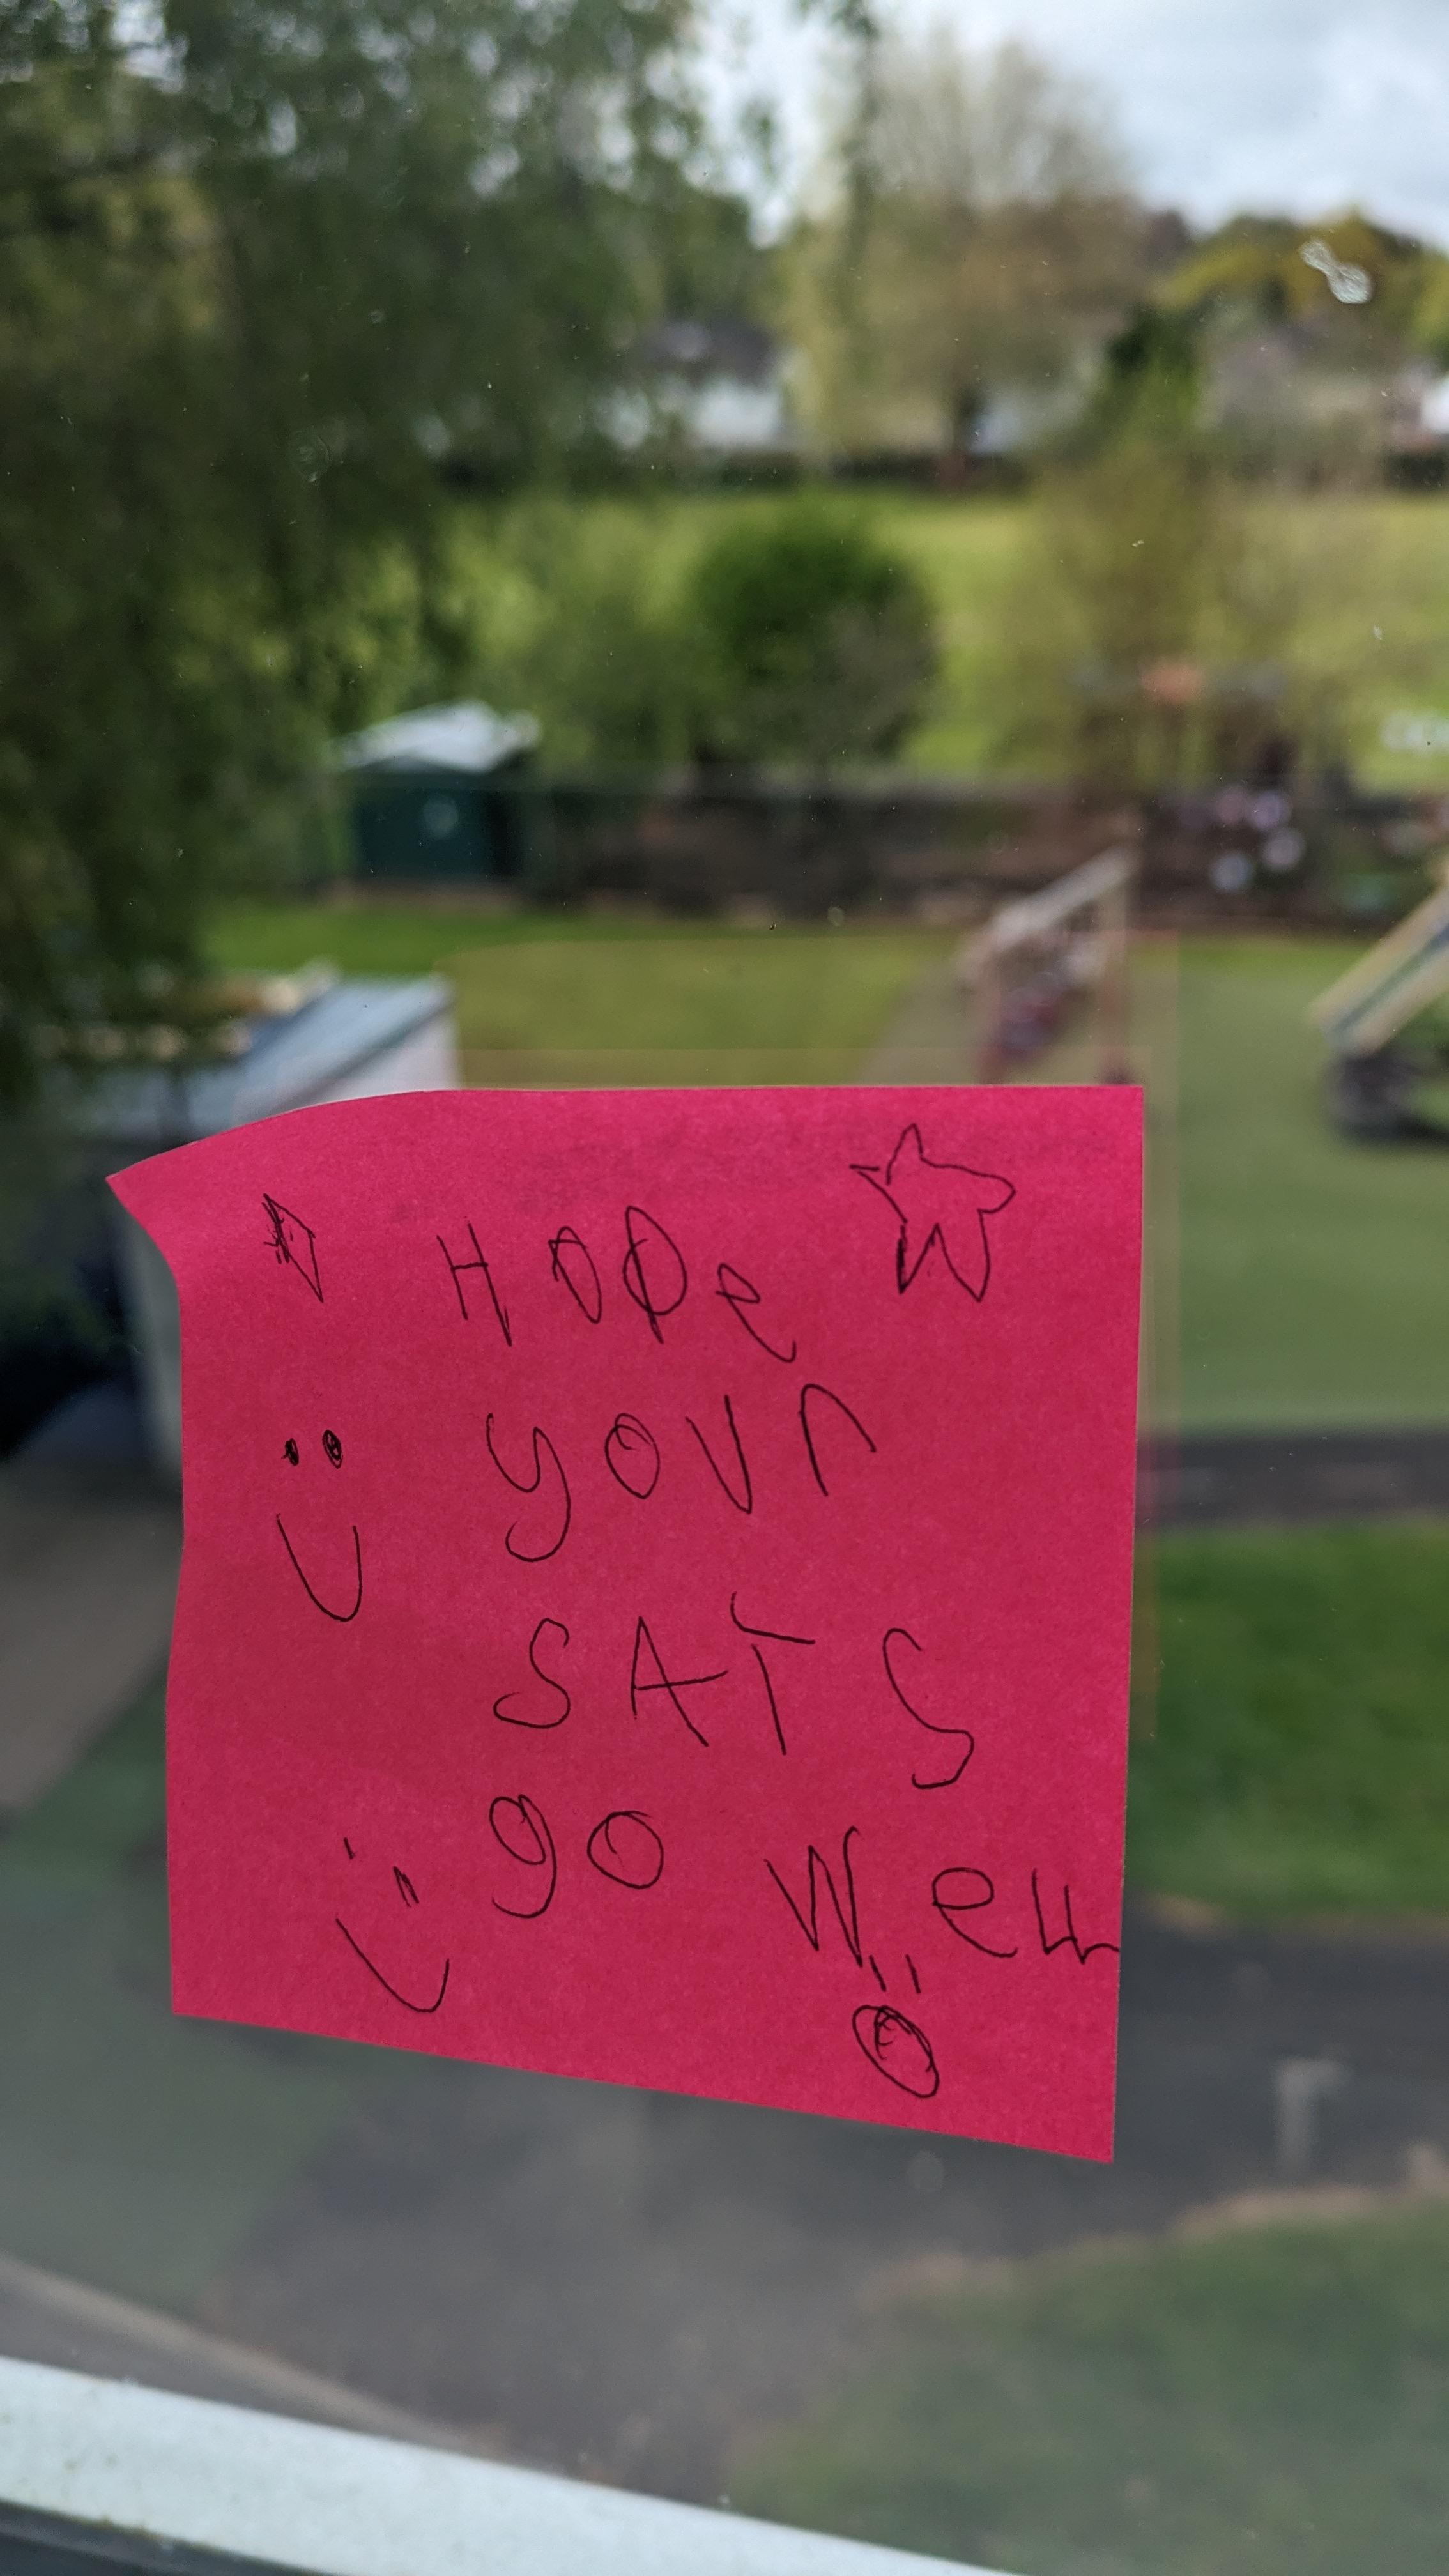 HOPe
your
SATS
go well